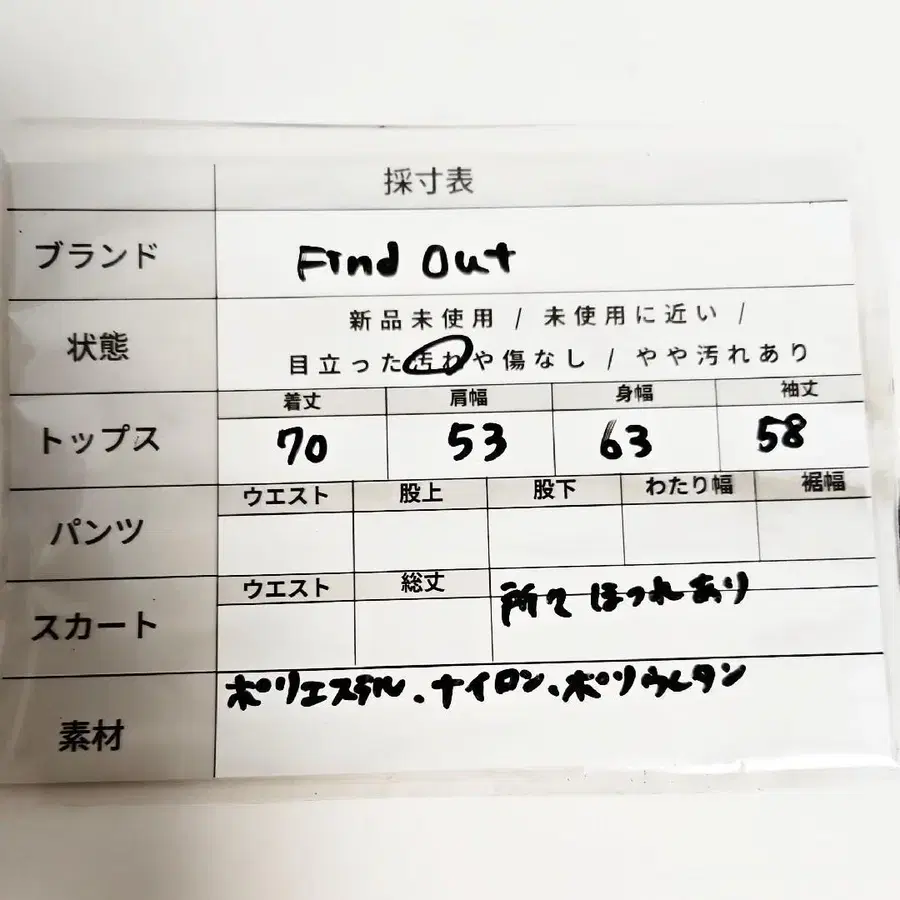 採寸表
ブランド Find Out
状態 新品未使用 / 未使用に近い /
目立った汚れや傷なし / やや汚れあり
着丈 肩幅 身幅 袖丈
トップス 70 53 63 58
ウエスト 股上 股下 わたり幅 裾幅
パンツ
ウエスト 総丈 所々ほつれあり
スカート
ポリエステル、ナイロン、ポリウレタン
素材